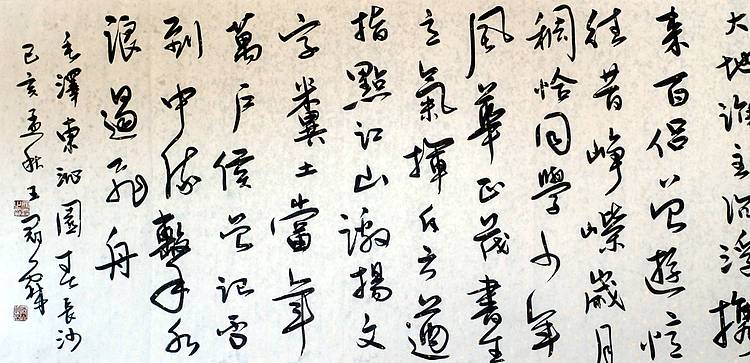 大地誰主沉浮攜
來百侶曾遊憶
往昔崢嶸歲月
稠恰同學少年
風華正茂書生
意氣揮斥方遒
指點江山激揚文
字糞土當年
萬戶侯曾記否
到中流擊水
浪遏飛舟
毛澤東沁園春長沙
己亥孟秋王